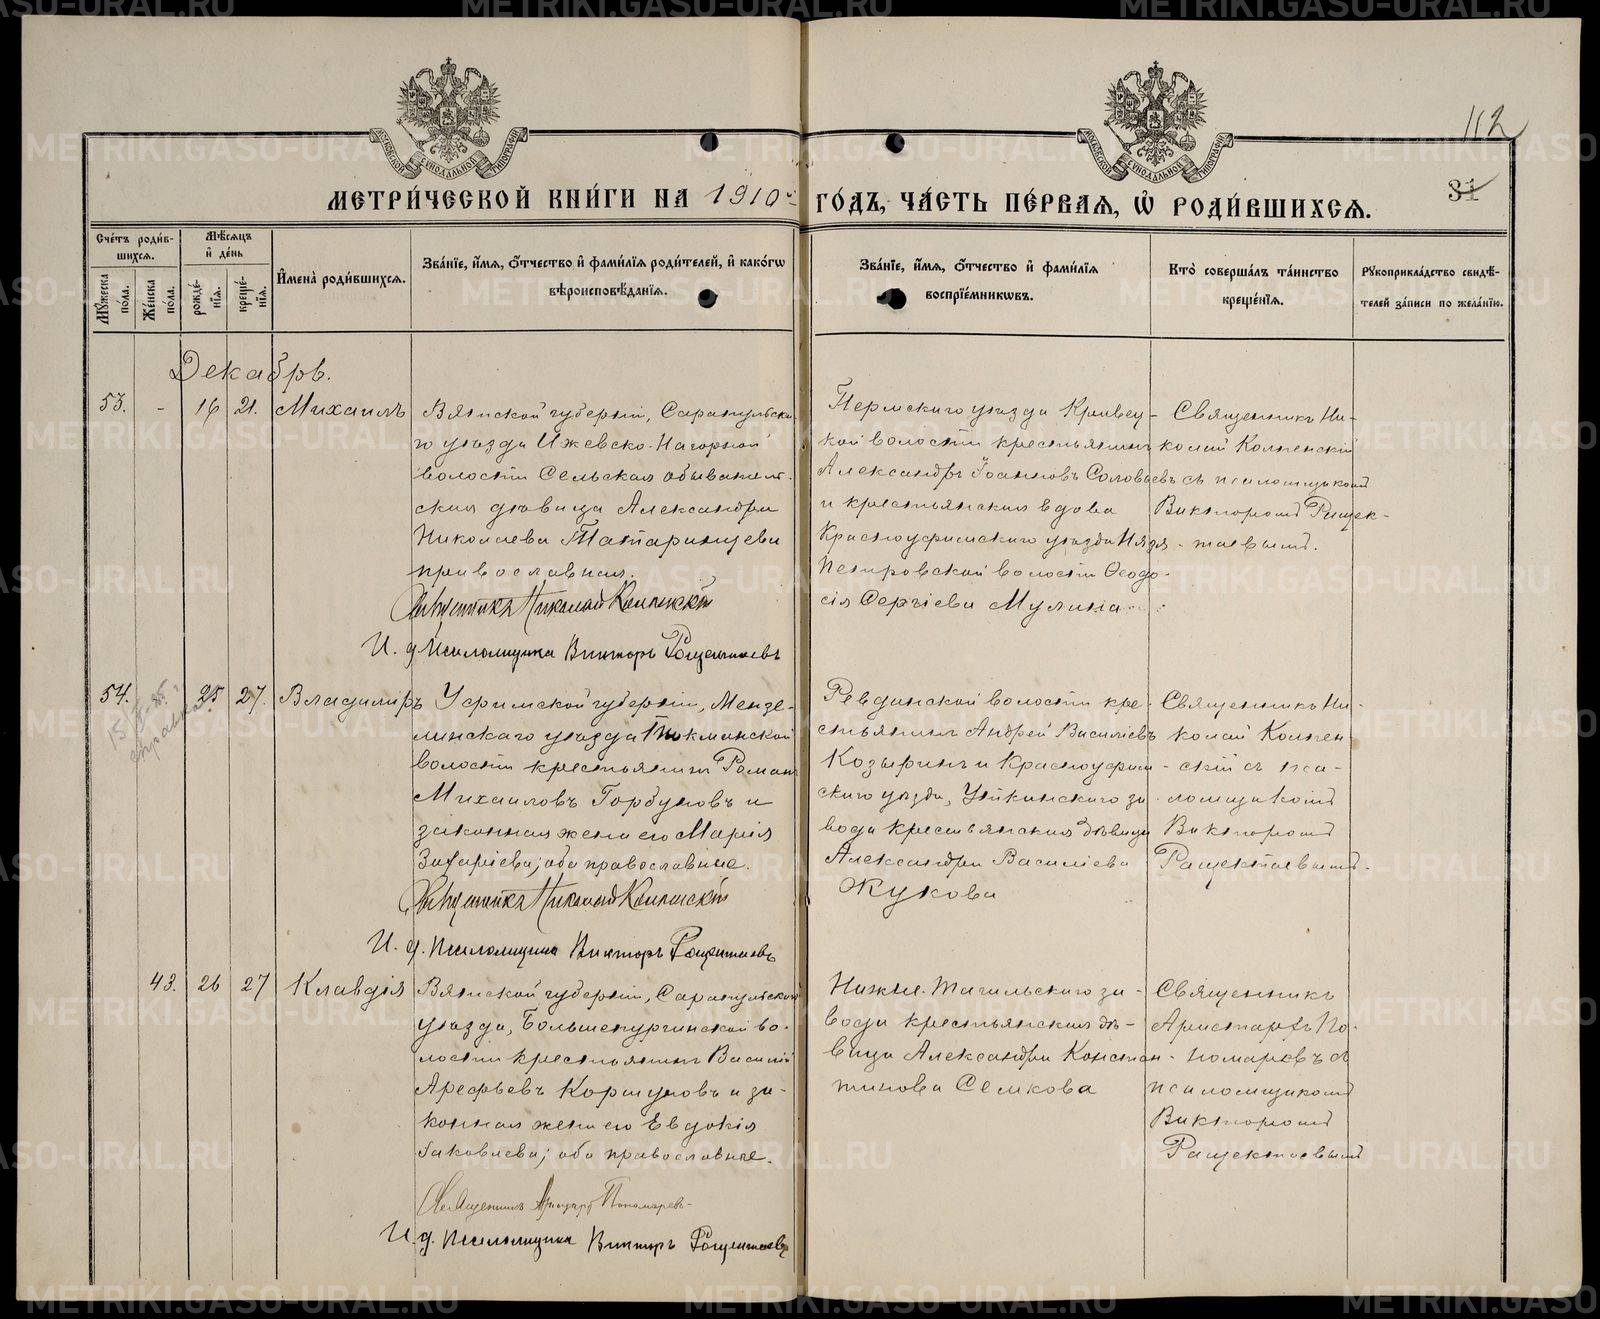 112
31
МЕТРИ́ЧЕСКОЙ КНИ́ГИ НА 1910й ГО́ДЪ, ЧА́СТЬ ПЕ́РВАЯ, Ѡ РОДИ́ВШИХСЯ.
Сче́тъ роди́вшихся.
Му́жеска по́ла.
Же́нска по́ла.
Мѣ́сяцъ и де́нь
рожде́нія.
креще́нія.
Имена̀ роди́вшихся.
Зва́ніе, и́мя, о́тчество и фами́лія роди́телей, и како́гѡ вѣроисповѣ́данія.
Зва́ніе, и́мя, о́тчество и фами́лія воспріе́мниковъ.
Кто̀ соверша́лъ та́инство креще́нія.
Рукоприкла́дство свидѣ́телей за́писи по жела́нію.
Декабрь.
53. - 16 21. Михаилъ
Вятской губерніи, Сарапульска-
го уѣзда Ижевско-Нагорной
волости Сельская обыватель-
ская дѣвица Александра
Николаева Татаринцева
православная.
Священникъ Николай Колпенскій
И. д. Псаломщика Викторъ Ращектаевъ
Пермскаго уѣзда
кой волости крестьянинъ
Александръ Іоанновъ Соловьевъ
и крестьянская вдова
Красноуфимскаго уѣзда Нязе-
Петровской волости Ѳеодо-
сія Сергіева Мулина
Священникъ Ни-
колай Колпенскій
съ псаломщикомъ
Викторомъ Ращек-
таевымъ.
54. 25 27. Владиміръ
справка
Уфимской губерніи, Мензе-
линскаго уѣзда Токмакской
волости крестьянинъ Романъ
Михаиловъ Горбуновъ и
законная жена его Марія
Захаріева; оба православные.
Священникъ Николай Колпенскій
И. д. Псаломщика Викторъ Ращектаевъ
Ревдинской волости кре-
стьянинъ Андрей Василіевъ
Козыринъ и Красноуфим-
скаго уѣзда, Уткинскаго за-
вода крестьянская дѣвица
Александра Василіева
Жукова
Священникъ Ни-
колай Колпен-
скій съ пса-
ломщикомъ
Викторомъ
Ращектаевымъ.
43. 26 27 Клавдія
Вятской губерніи, Сарапульскаго
уѣзда, Большепургинской во-
лости крестьянинъ Василій
Арефьевъ Коршуновъ и за-
конная жена его Евдокія
Іаковлева; оба православные.
Священникъ Аристархъ Пономаревъ
И. д. Псаломщика Викторъ Ращектаевъ
Нижне-Тагильскаго за-
вода крестьянская дѣ-
вица Александра Констан-
тинова Семкова
Священникъ
Аристархъ По-
номаревъ съ
псаломщикомъ
Викторомъ
Ращектаевымъ